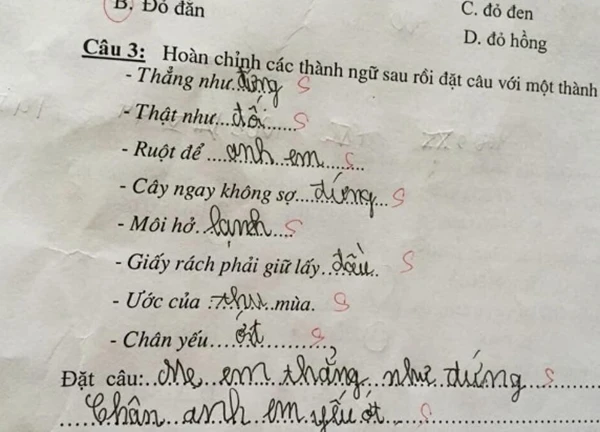 B. Đỏ đắn
C. đỏ đen
D. đỏ hồng
Câu 3: Hoàn chỉnh các thành ngữ sau rồi đặt câu với một thành
- Thẳng như đứng S
- Thật như...dối...... S
- Ruột để ....anh em...... S
- Cây ngay không sợ....đứng... S
- Môi hở. lạnh.... S
- Giấy rách phải giữ lấy..đầu. S
- Ước của thu mùa. S
- Chân yếu....ớt......... S
Đặt câu:..Mẹ em thẳng như dứng S
Chân anh em yếu ớt S